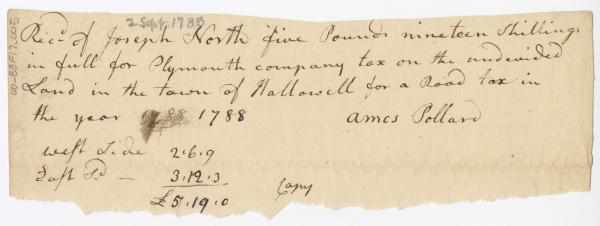 2 Sept. 1788
Recd of Joseph North five Pounds nineteen Shillings
in full for Plymouth company tax on the undevided
Land in the town of Hallowell for a Road tax in
the year 1788 1788 Amos Pollard
West Side 2.6.9
East Do — 3.12.3
£5.19.0 Copy